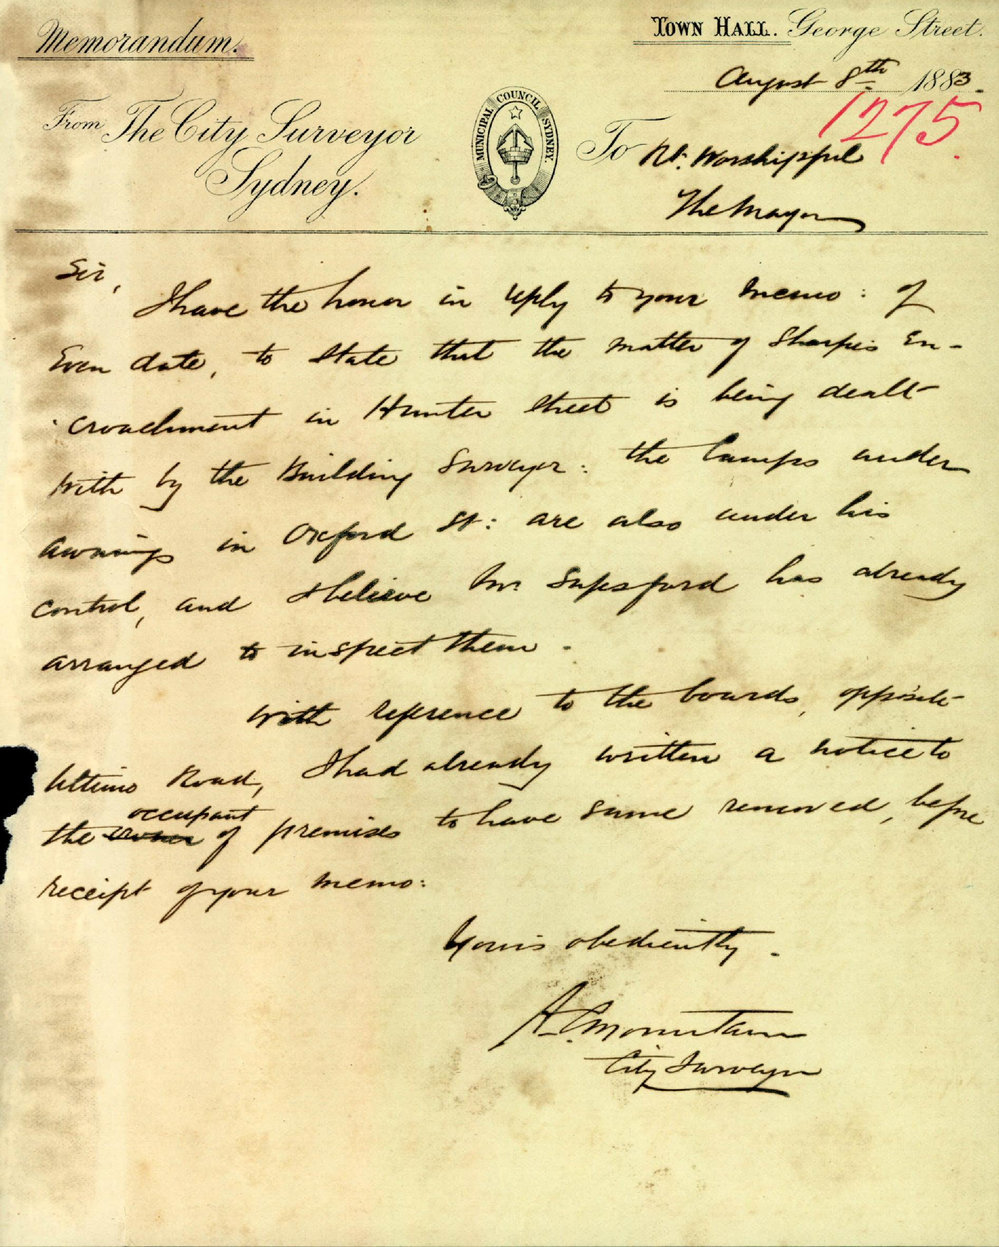 Memorandum.
TOWN HALL. George Street.
August 8th 1883.
1275.
From The City Surveyor
Sydney.
MUNICIPAL COUNCIL SYDNEY.
To Rt. Worshipful
The Mayor
Sir,
I have the honor in reply to your memo: of
Even date, to State that the matter of Sharpe's En-
croachment in Hunter Street is being dealt
With by the Building Surveyor: the lamps under
awnings in Oxford St: are also under his
control, and I believe Mr. Sapsford has already
arranged to inspect them.
With reference to the boards, opposite
Ultimo Road, I had already written a notice to
occupant
the owner of premises to have same removed, before
receipt of your memo:
Yours obediently.
A. C. Mountain
City Surveyor